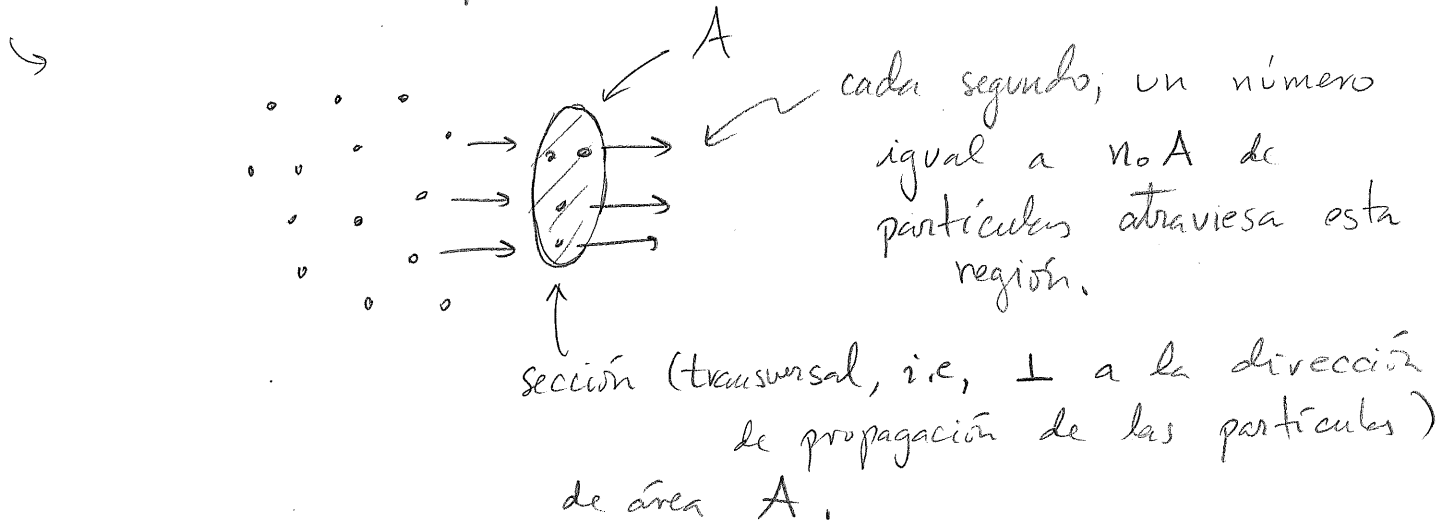 A
cada segundo, un número
igual a n₀ A de
partículas atraviesa esta
región.
sección (transversal, i.e, ⊥ a la dirección
de propagación de las partículas)
de área A.